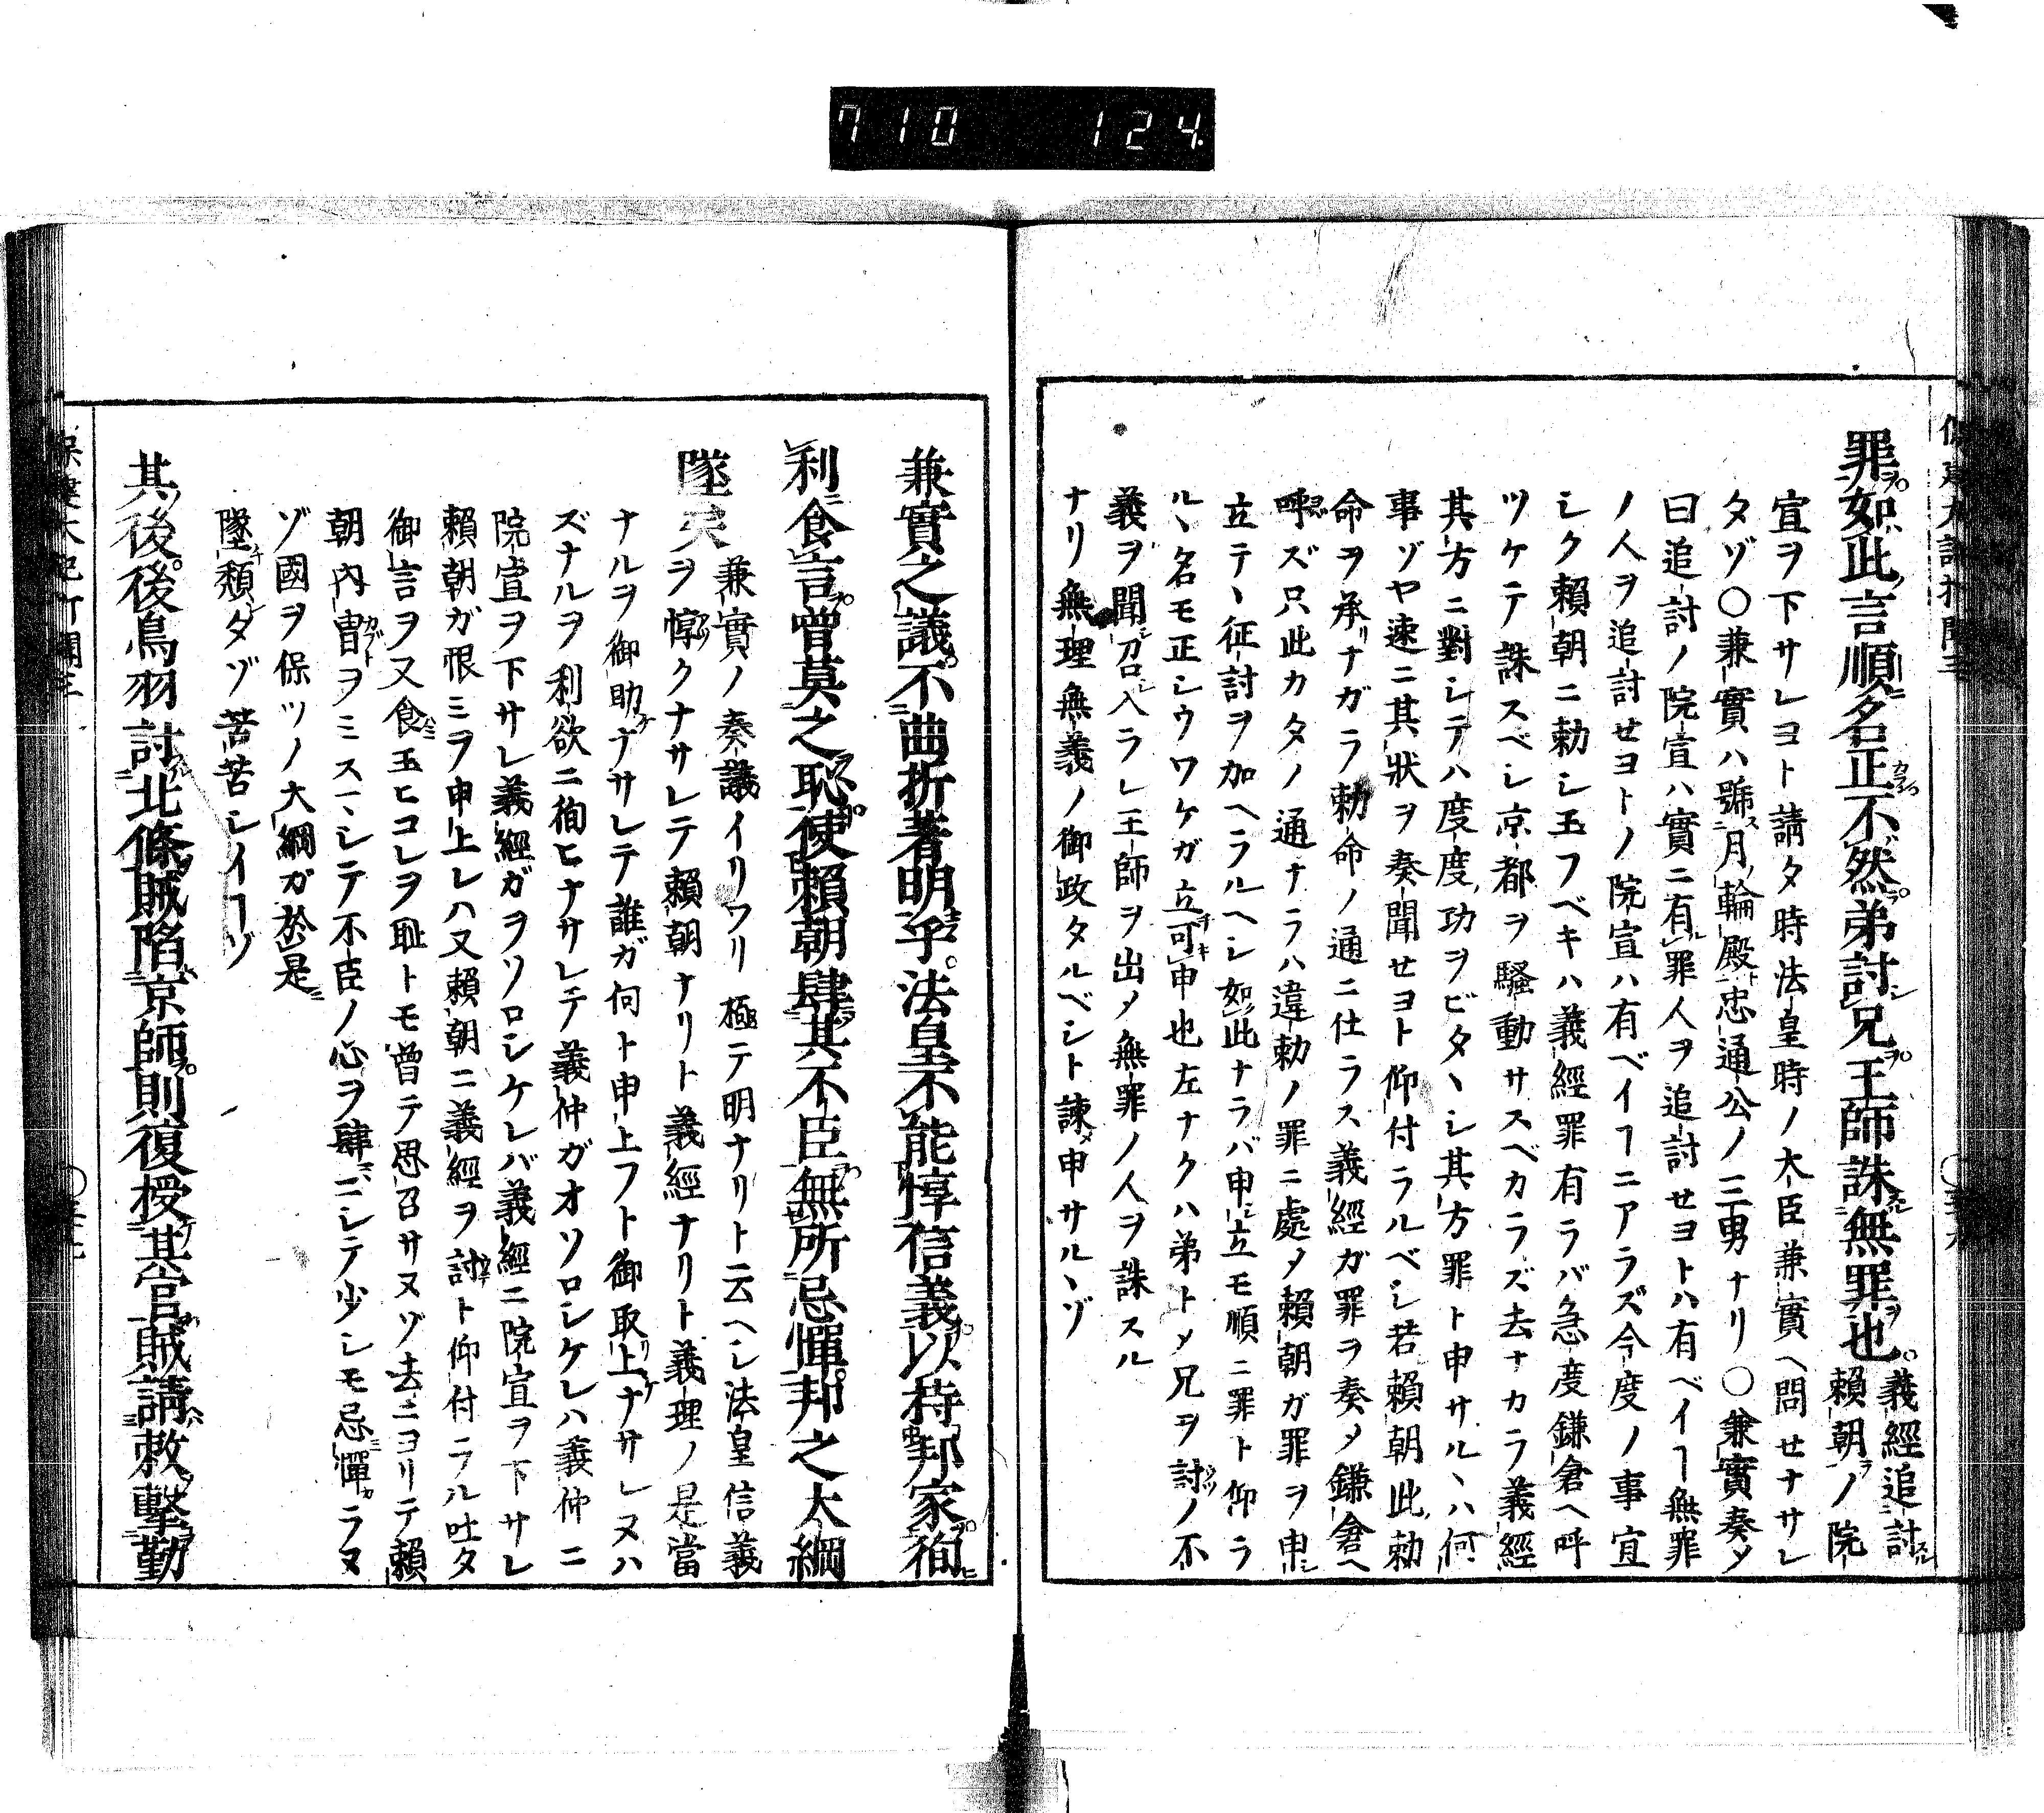 710 124
罪如此言順名正不然弟討兄王師誅無罪也。義經追討
賴朝ノ院
宣ヲ下サレヨト請タ時法皇時ノ大臣兼實ヘ問セナサレ
タゾ〇兼實ハ號月輪殿忠通公ノ三男ナリ〇兼實奏メ
曰追討ノ院宣ハ實ニ有罪人ヲ追討セヨトハ有ベイヿ無罪
ノ人ヲ追討セヨトノ院宣ハ有ベイヿニアラズ今度ノ事宜
シク賴朝ニ勅シ玉フベキハ義經罪有ラバ急度鎌倉ヘ呼
ツケテ誅スベシ京都ヲ騷動サスベカラズ去ナカラ義經
其方ニ對シテハ度度功ヲビタヽシ其方罪ト申サルヽハ何
事ゾヤ速ニ其狀ヲ奏聞セヨト仰付ラルベシ若賴朝此勅
命ヲ承リナガラ勅命ノ通ニ仕ラス義經ガ罪ヲ奏メ鎌倉ヘ
呼ズ只此カタノ通ナラハ違勅ノ罪ニ處メ賴朝ガ罪ヲ申シ
立テヽ征討ヲ加ヘラルヘシ如此ナラバ申シ立モ順ニ罪ト仰ラ
ルヽ名モ正シウワケガ立可申也左ナクハ弟トメ兄ヲ討ノ不
義ヲ聞召入ラレ王師ヲ出メ無罪ノ人ヲ誅スル
ナリ無理無義ノ御政タルベシト諫メ申サルヽゾ
兼實之議不曲折著明乎。法皇不能惇信義以持邦家徇
利食言曾莫之恥使賴朝肆其不臣無所忌憚邦之大綱
墜矣兼實ノ奏議イリワリ極テ明ナリト云ヘシ法皇信義
ヲ惇クナサレテ賴朝ナリト義經ナリト義理ノ是當
ナルヲ御助ケナサレテ誰ガ何ト申上フト御取上ケナサレヌハ
ズナルヲ利欲ニ徇ヒナサレテ義仲ガオソロシケレハ義仲ニ
院宣ヲ下サレ義經ガヲソロシケレバ義經ニ院宣ヲ下サレ
賴朝ガ恨ミヲ申上レハ又賴朝ニ義經ヲ討ト仰付ラル吐タ
御言ヲ又食玉ヒコレヲ恥トモ曾テ思召サヌゾ去ニヨリテ賴
朝內冑ヲミスヽシテ不臣ノ心ヲ肆ニシテ少シモ忌憚ラヌ
ゾ國ヲ保ツノ大綱ガ於是
墜頽タゾ苦苦シイヿゾ
其後後鳥羽討北條賊陷京師則復授其官賊請救擊勤